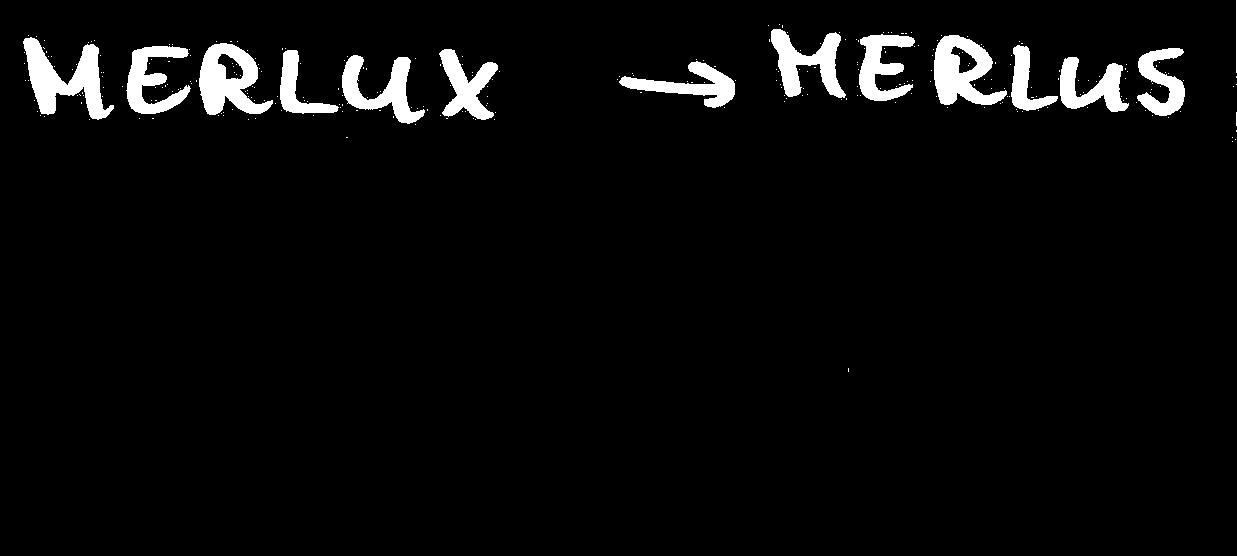 MERLUX → MERLUS